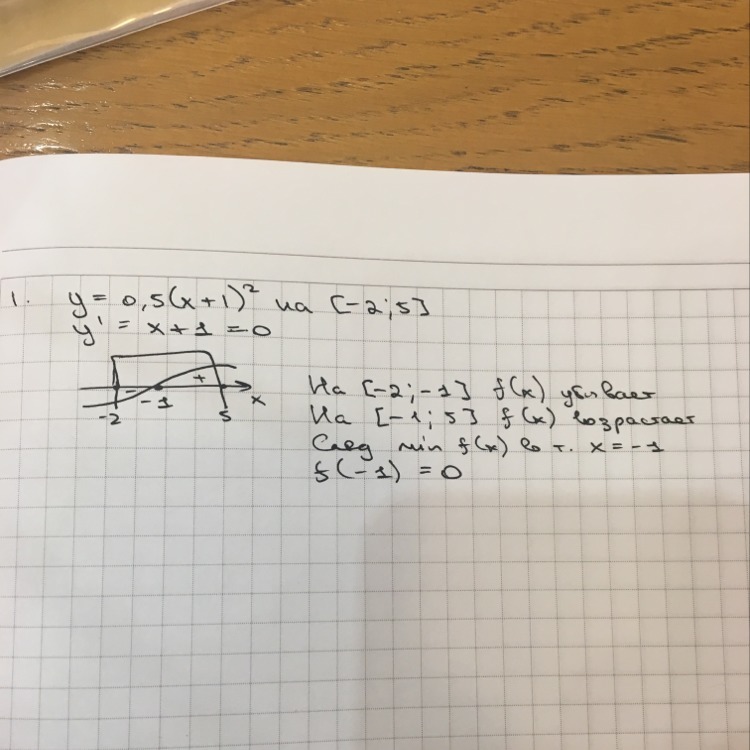 1. y = 0,5(x+1)² на [-2;5]
y' = x+1 =0
- + -1 -2 5 x
На [-2;-1] f(x) убывает
На [-1;5] f(x) возрастает
След min f(x) в т. x = -1
f(-1) = 0